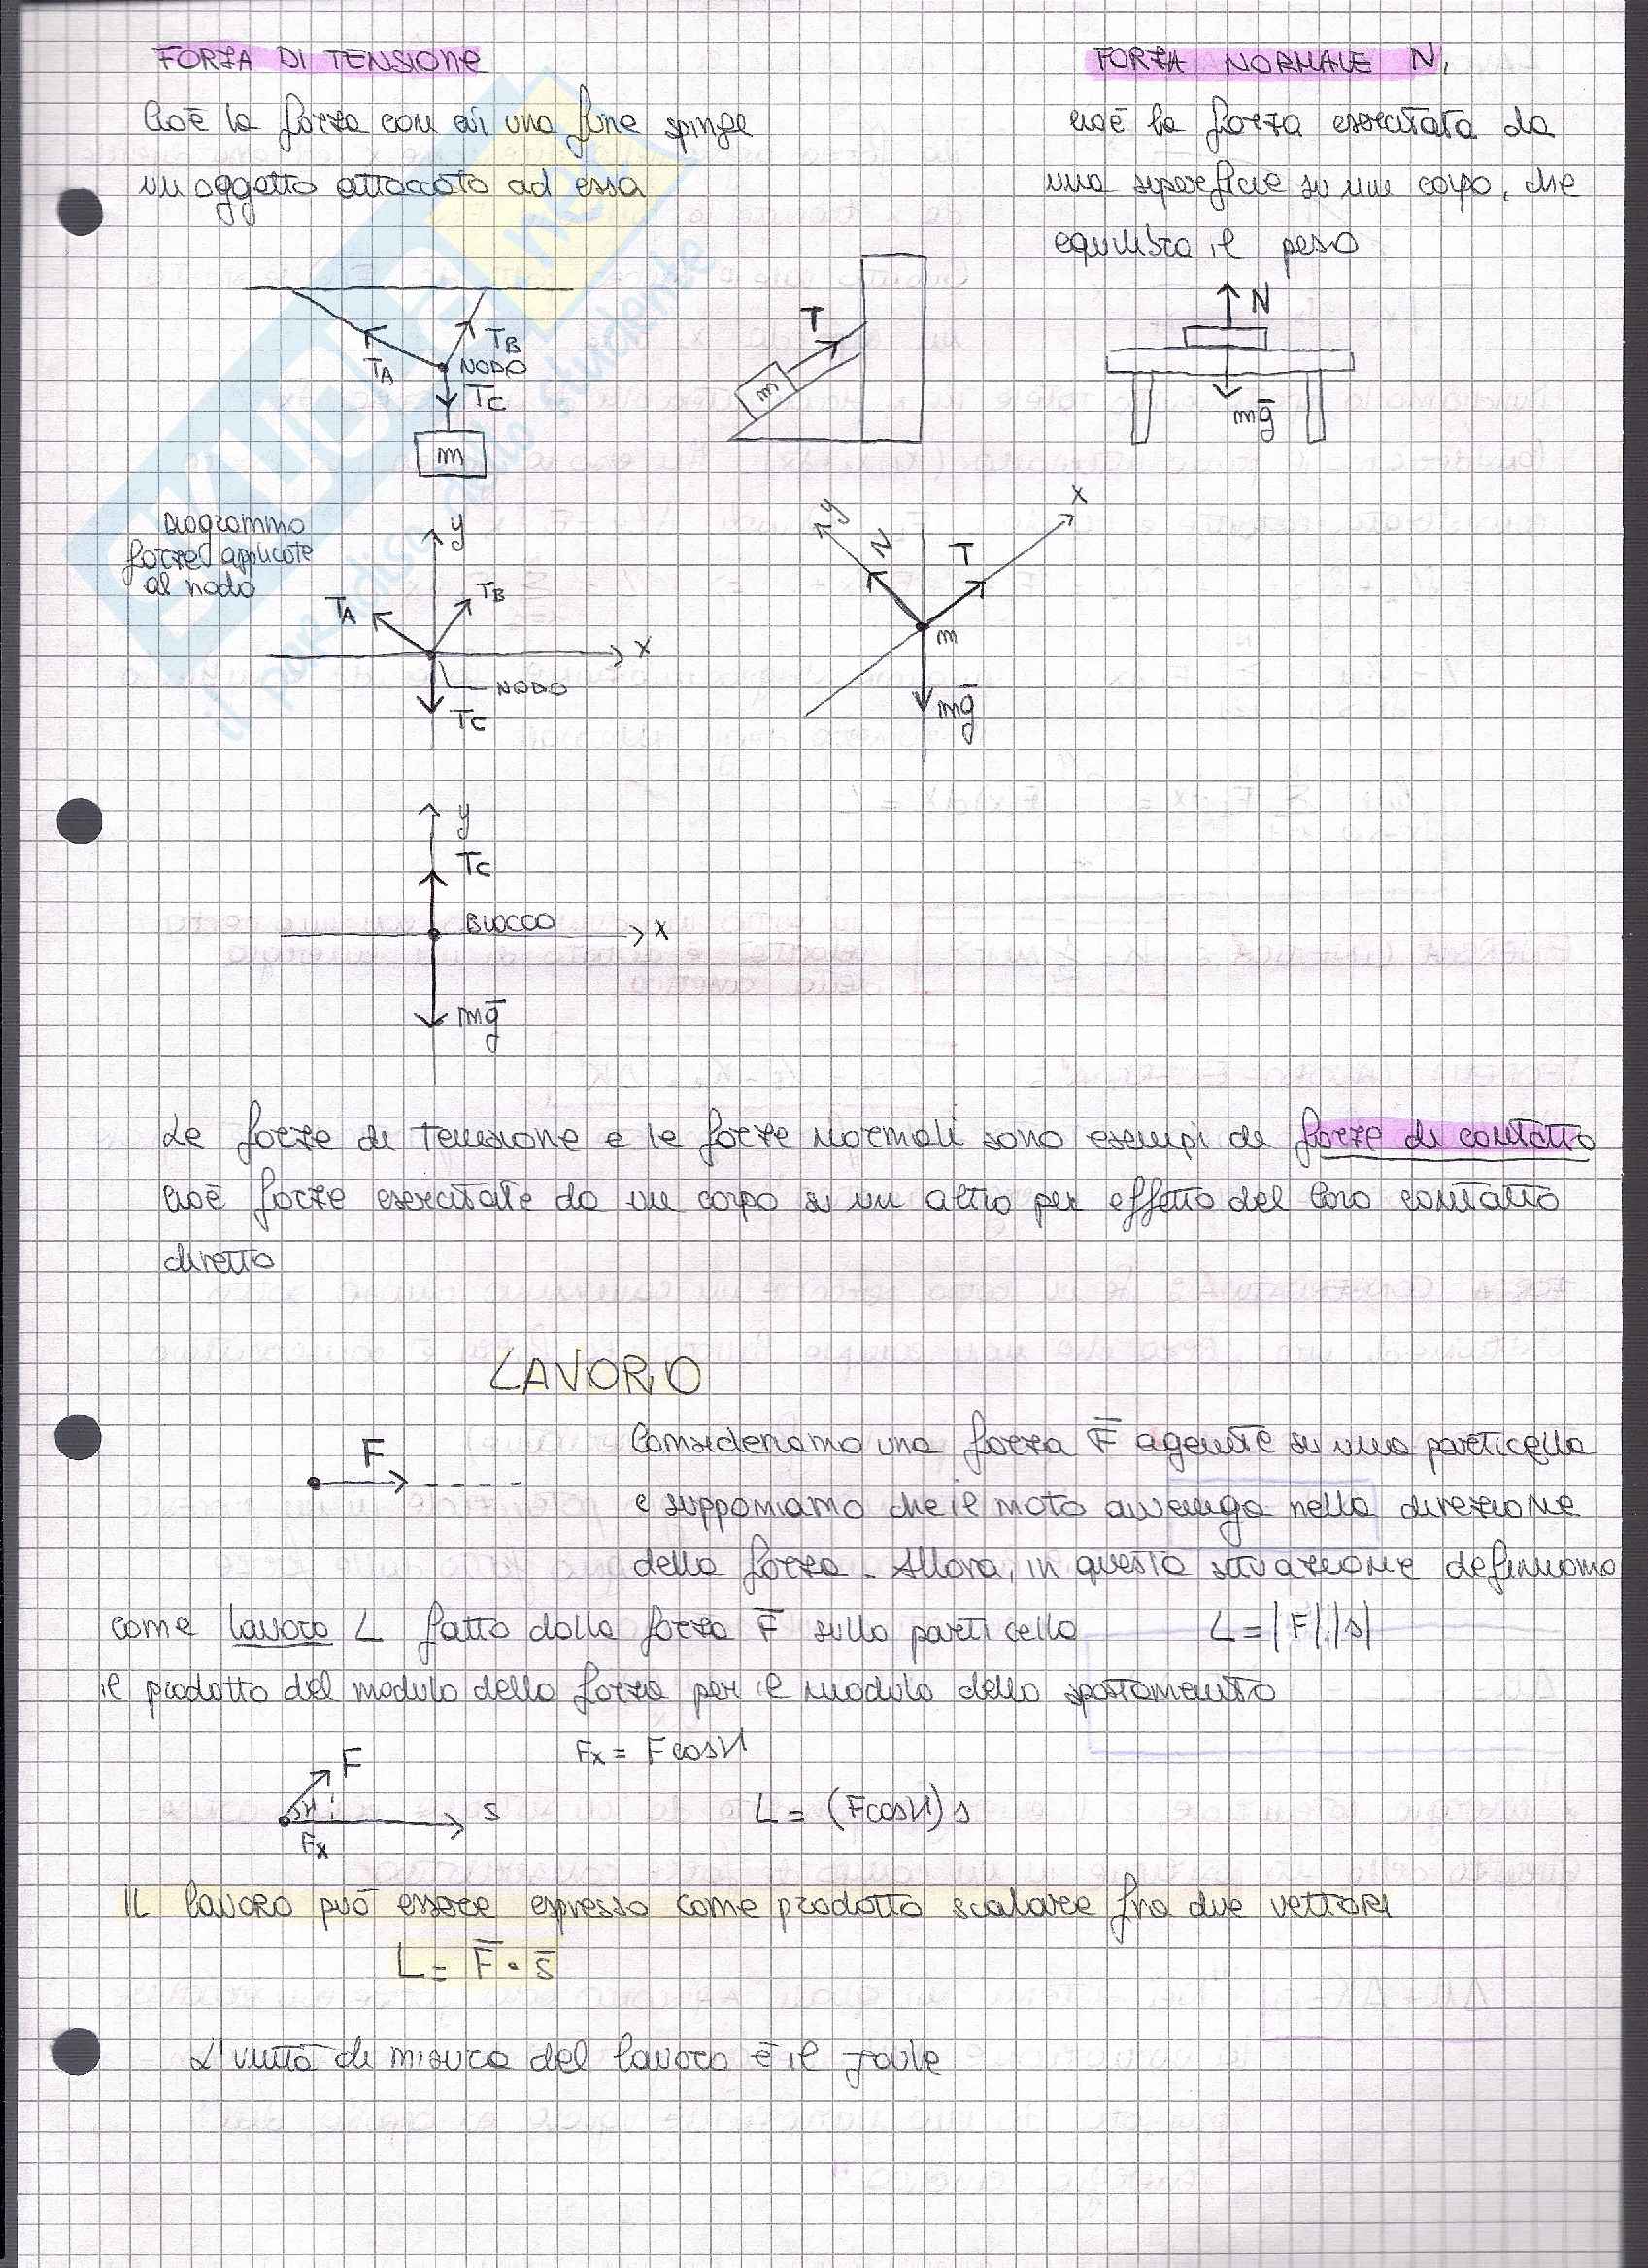 FORZA DI TENSIONE
Cioè la forza con cui una fune spinge
un oggetto attaccato ad essa
FORZA NORMALE N,
cioè la forza esercitata da
una superficie su un corpo, che
equilibra il peso
TA
TB
NODO
TC
m
T
m
N
mg̅
Diagramma
forze applicate
al nodo
y
TA
TB
x
NODO
TC
y
N
T
x
m
mg̅
y
TC
BLOCCO
x
mg̅
Le forze di tensione e le forze normali sono esempi di forze di contatto
cioè forze esercitate da un corpo su un altro per effetto del loro contatto
diretto
LAVORO
F
Consideriamo una forza F̅ agente su una particella
e supponiamo che il moto avvenga nella direzione
della forza. Allora, in questa situazione definiamo
come lavoro L fatto dalla forza F̅ sulla particella L = |F|·|s|
il prodotto del modulo della forza per il modulo dello spostamento
Fx = F cosϑ
F
ϑ
s
Fx
L = (F cosϑ) s
IL lavoro può essere espresso come prodotto scalare fra due vettori
L = F̅ · s̅
L'unità di misura del lavoro è il joule